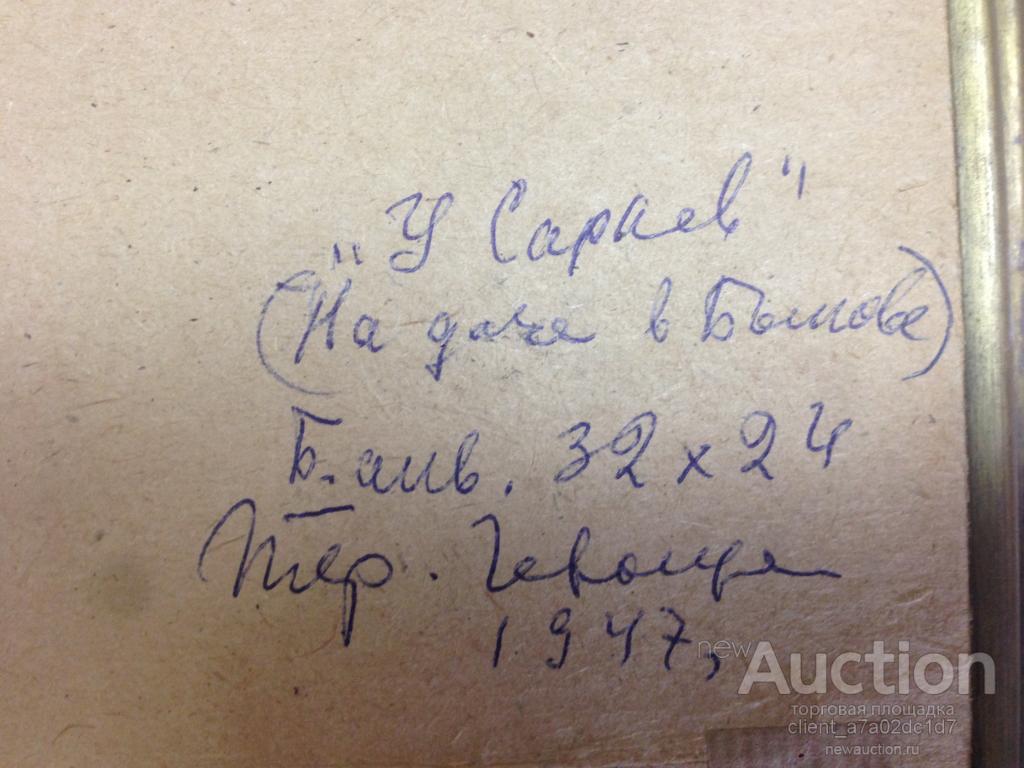 "У Сариев"
(На даче в Быкове)
Б. акв. 32 х 24
1947,
newAuction
торговая площадка
client_a7a02dc1d7
newauction.ru